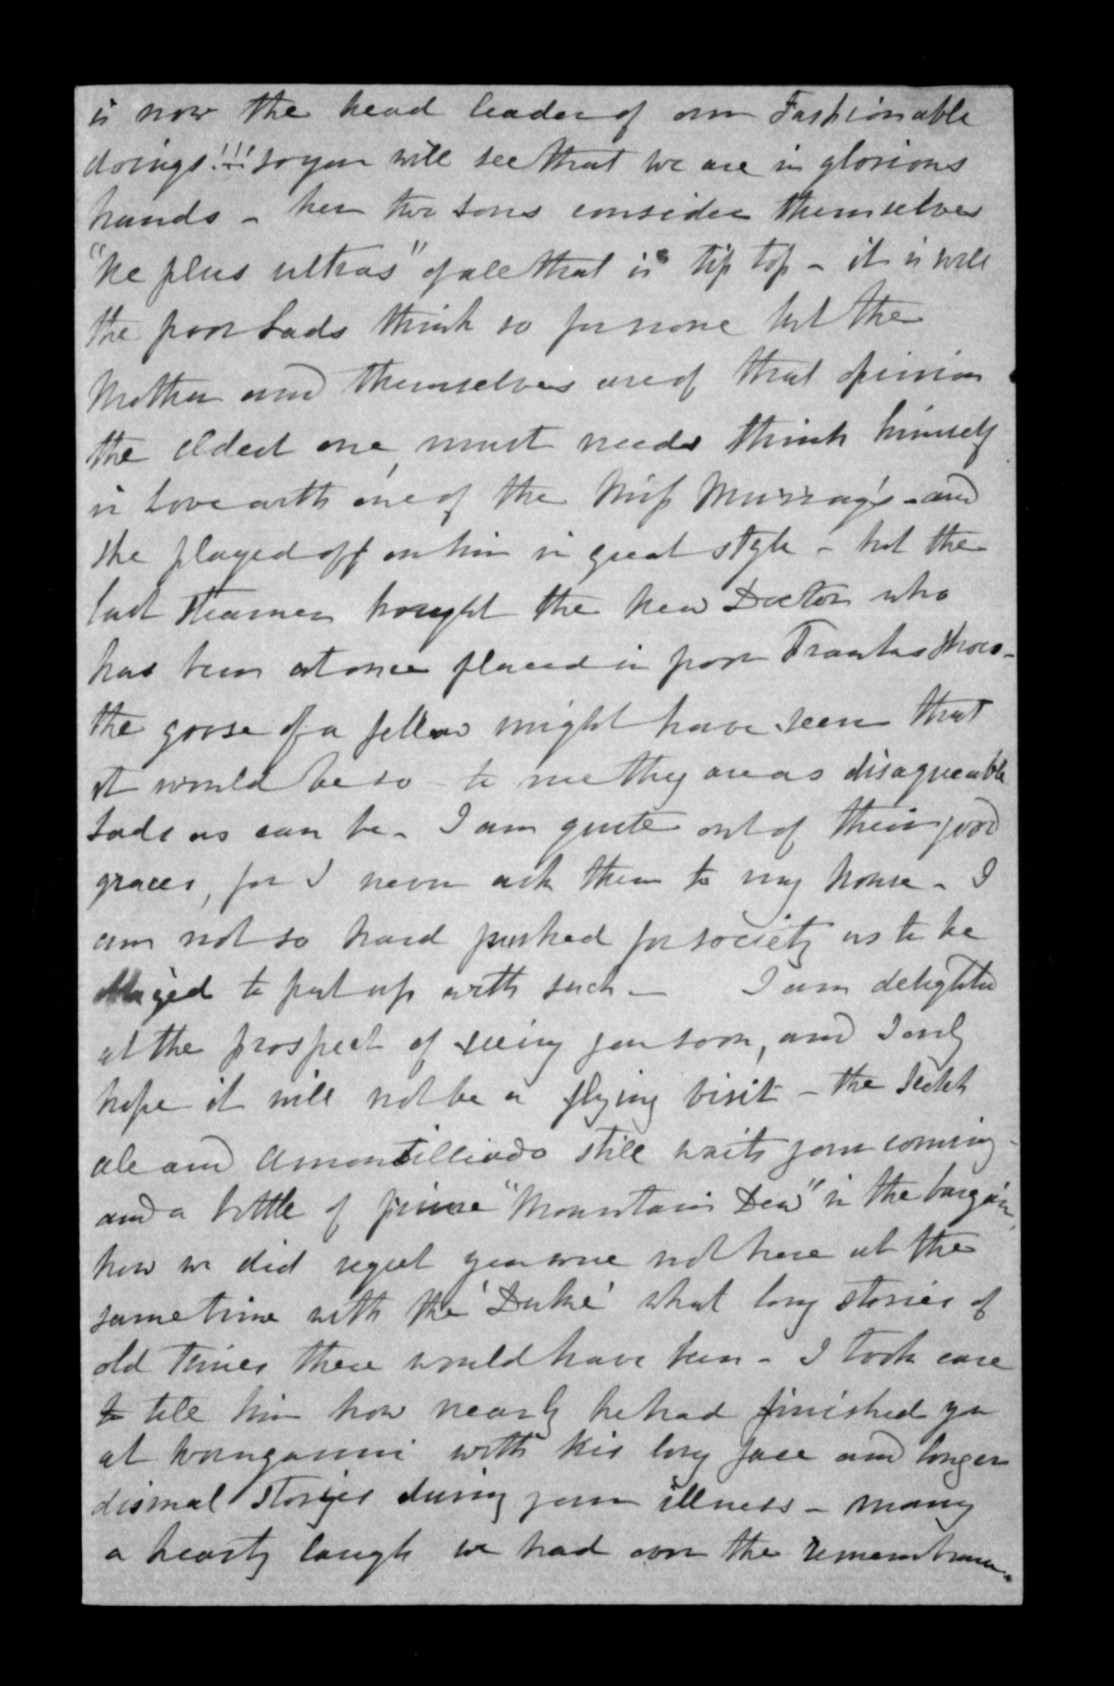 is now the head leader of our Fashionable
doings!!! so you will see that we are in glorious
hands - her two sons consider themselves
"ne plus ultras" of all that is tip top - it is well
the poor Lads think so for none but the
Mother and themselves are of that opinion
the eldest one, must needs think himself
in Love with one of the Miss Murray's - and
she played off on him in great style - but the
last steamer brought the new Doctor who
has been at once placed in poor Franks shoes -
the goose of a fellow might have seen that
it would be so - to me they are as disagreeable
Lads as can be - I am quite out of their good
graces, for I never ask them to my house - I
am not so hard pushed for society as to be
obliged to put up with such - I am delighted
at the prospect of seeing you soon, and I only
hope it will not be a flying visit - the Scotch
ale and Amontilliado still waits your coming -
and a bottle of prime "Mountain Dew" in the bargain,
how we did regret you were not here at the
same time with the 'Duke' what long stories of
old times there would have been - I took care
to tell him how nearly he had finished you
at Wanganui with his long face and longer
dismal stories during your illness - many
a hearty laugh we had over the remembrance.